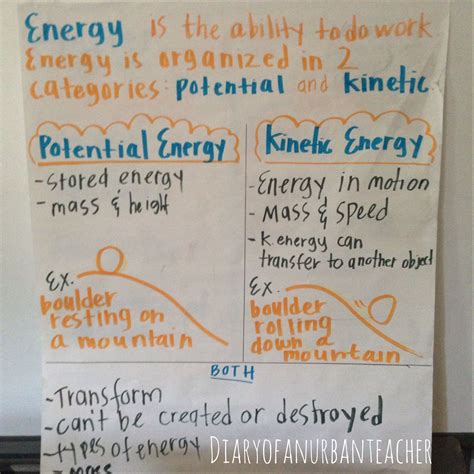 Energy is the ability to do work
Energy is organized in 2
categories: potential and kinetic.
Potential Energy
- stored energy
- mass & height
Ex.
boulder
resting on
a mountain
Kinetic Energy
- Energy in motion
- Mass & Speed
- K. energy can
transfer to another object
Ex.
boulder
rolling
down a
mountain
BOTH
- Transform
- can't be created or destroyed
- types of energy
DIARYOFANURBANTEACHER